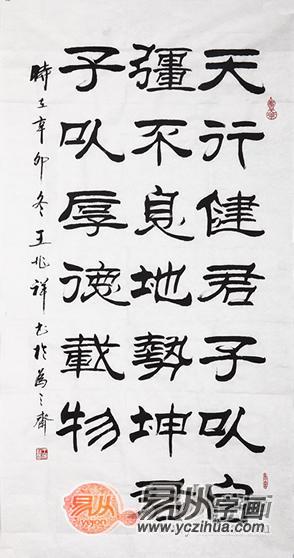 天行健君子以
彊不息地勢坤君
子以厚德載物
時在辛卯冬王兆祥书於之齋
易从字画
www.yczihua.com